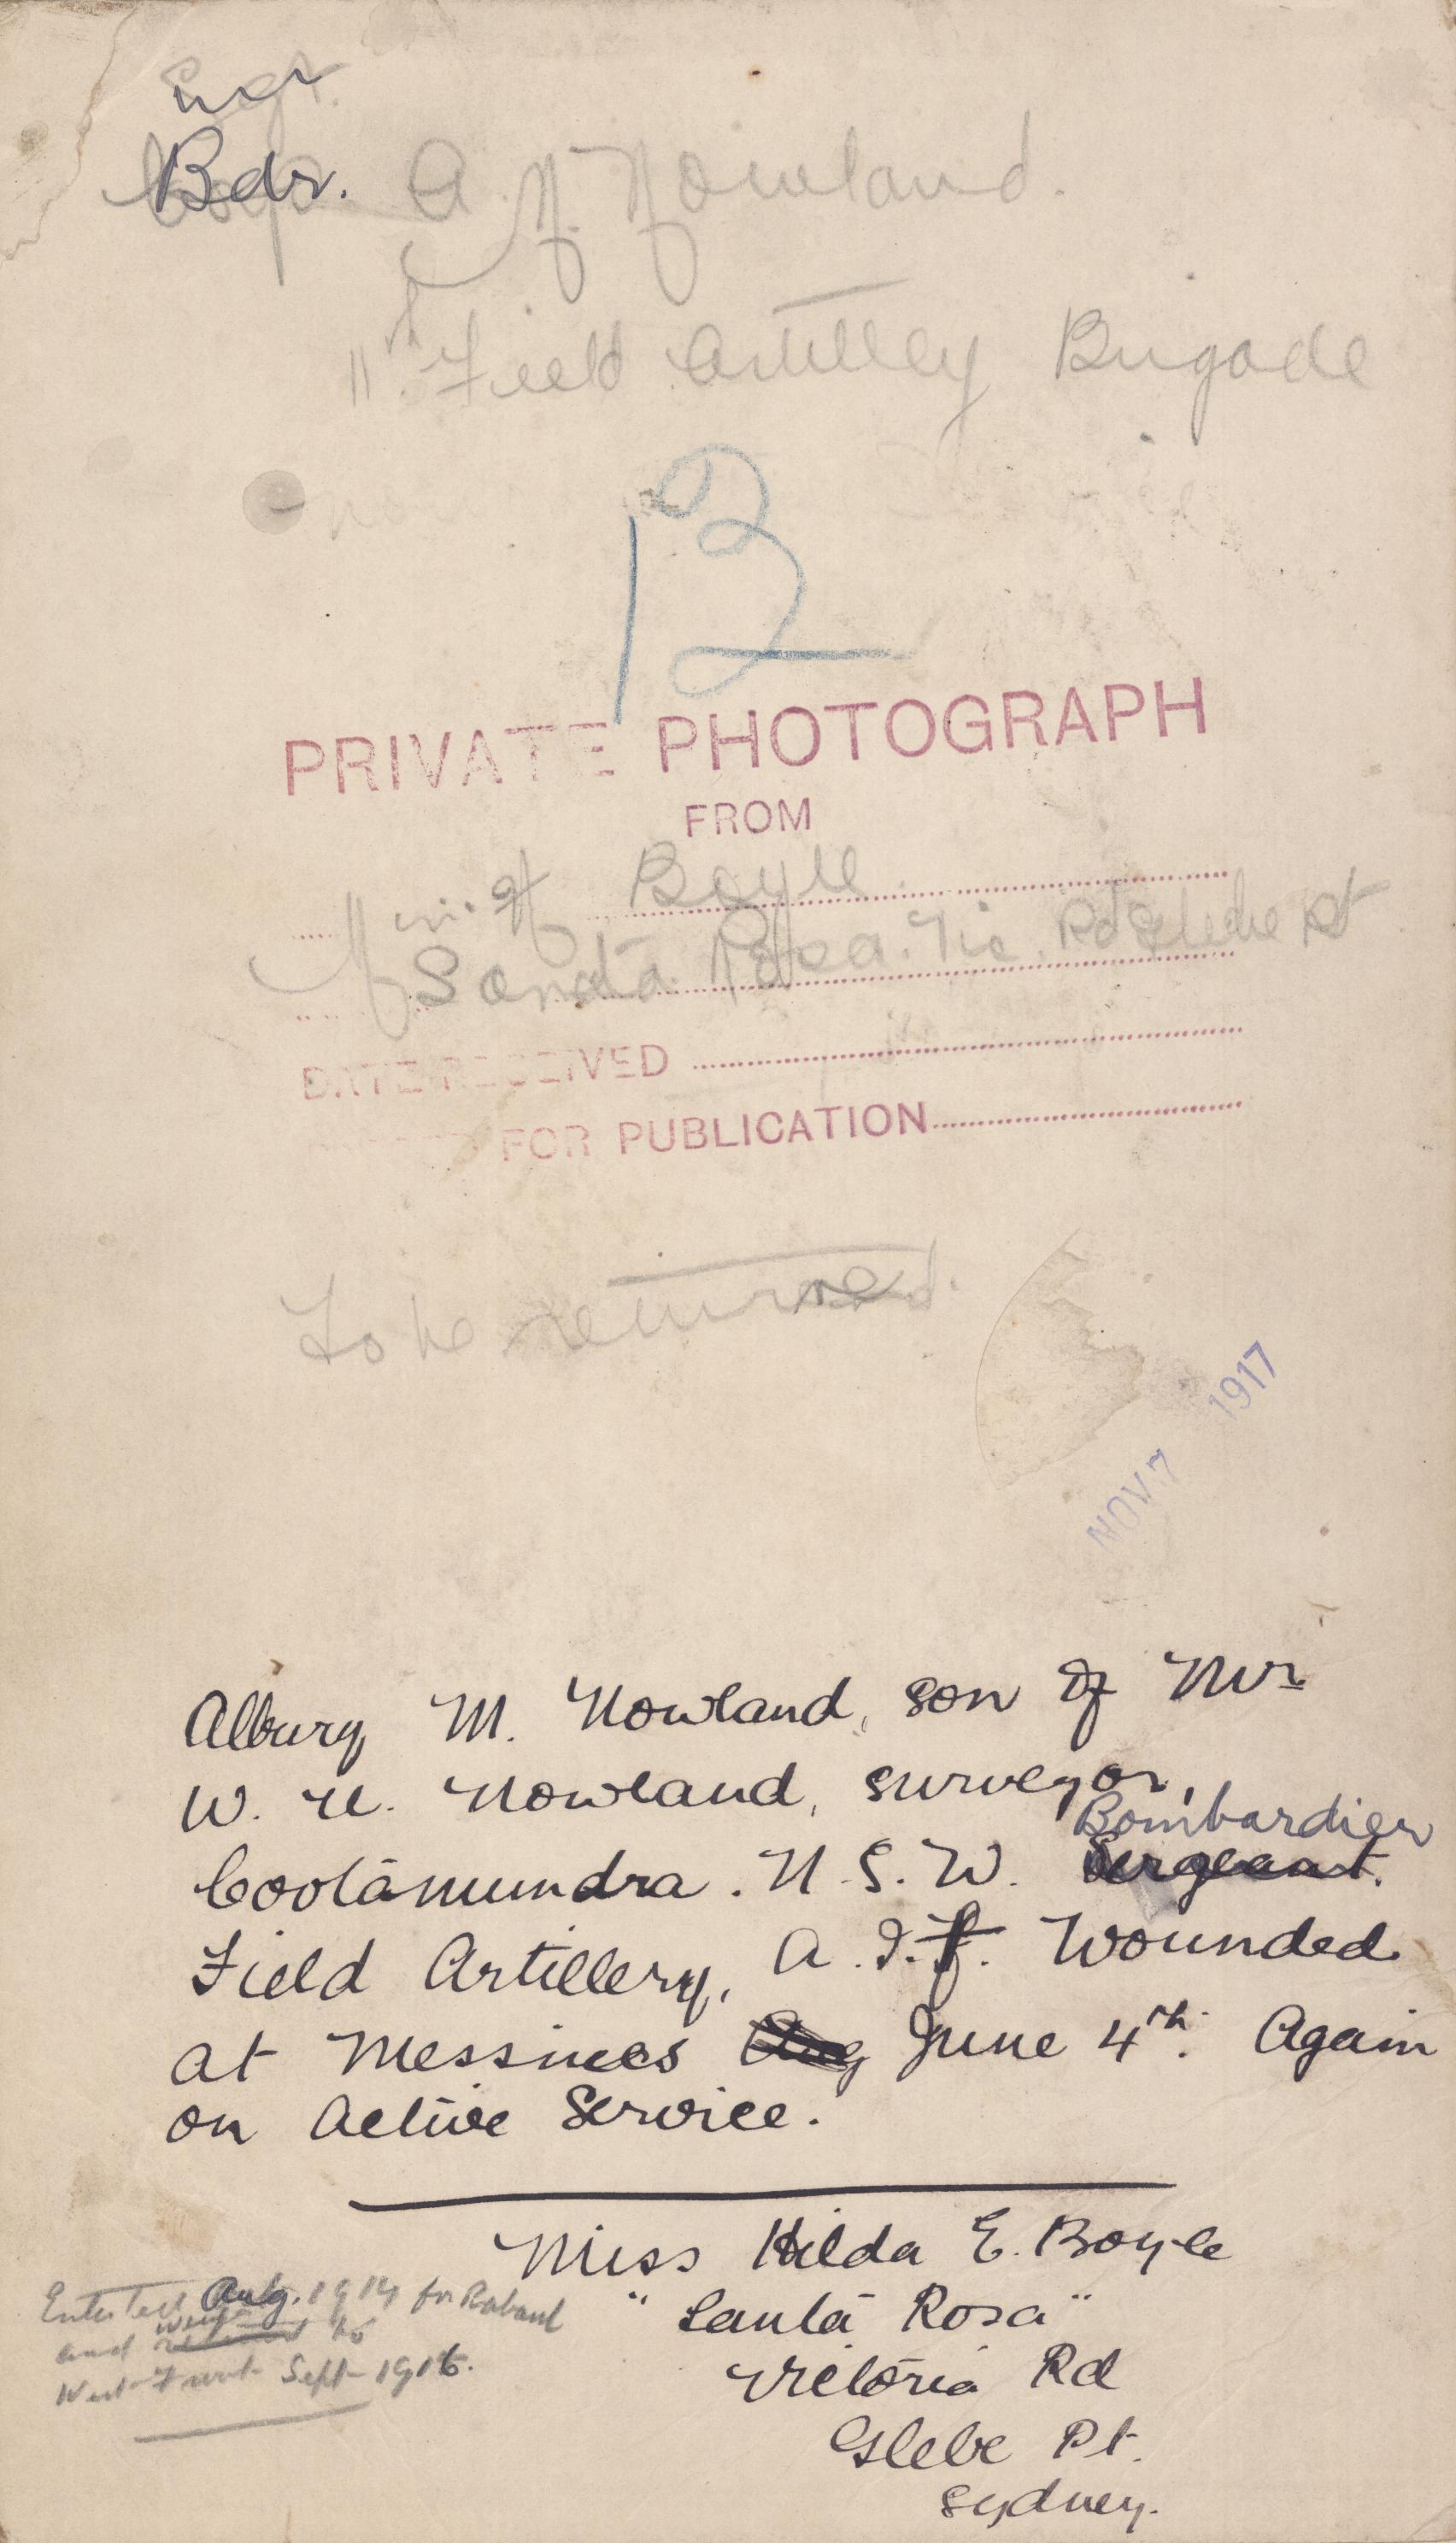 Bdr. A. M. Nowland.
11th Field Artillery Brigade
12
PRIVATE PHOTOGRAPH
FROM
Boyle
Santa Rosa. Vic. Rd Glebe Pt
DATE RECEIVED
FOR PUBLICATION
To be returned.
NOV 7 1917
Albury M. Nowland, son of Mr
W. H. Nowland, surveyor,
Bombardier
Cootamundra. N.S.W. Sergeant.
Field Artillery, A.I.F. Wounded
at Messines Aug June 4th. Again
on Active Service.
Miss Hilda E. Boyle
"Santa Rosa"
Victoria Rd
Glebe Pt.
Sydney.
Enlisted Aug. 1914 for Rabaul
and went to
West Front Sept 1916.